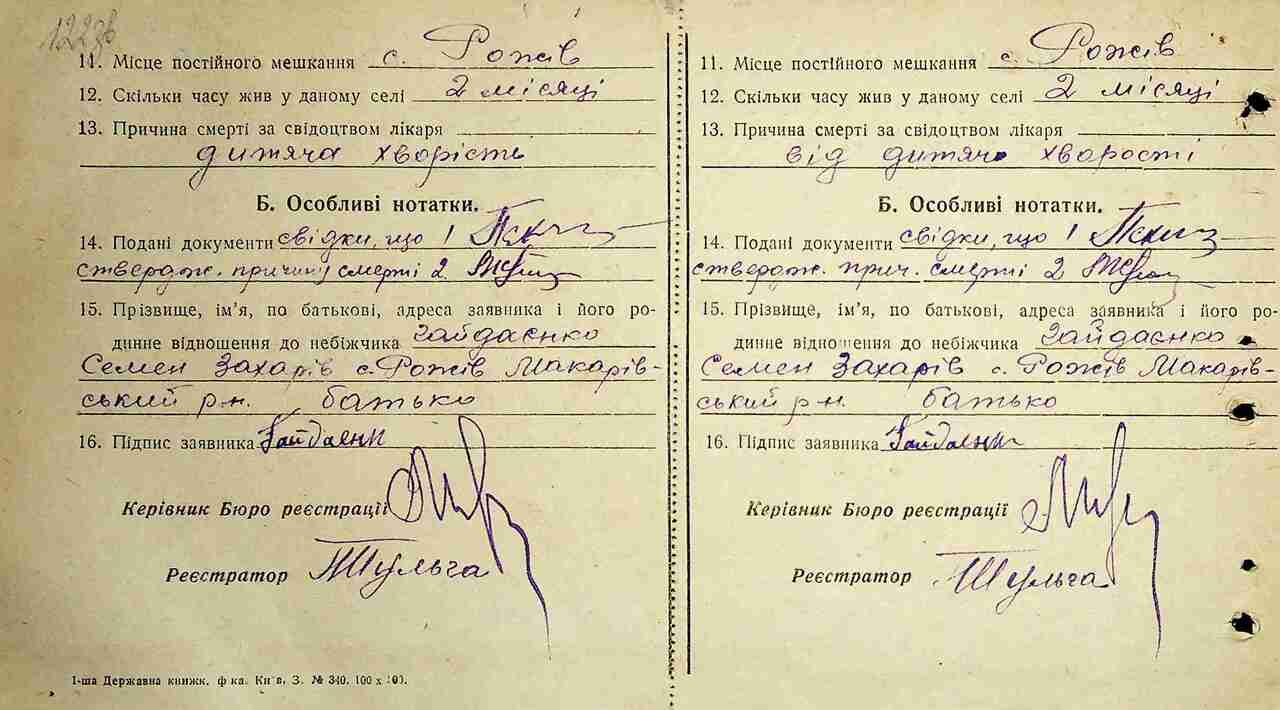 11. Місце постійного мешкання с. Рожів
12. Скільки часу жив у даному селі 2 місяці
13. Причина смерти за свідоцтвом лікаря
дитяча хворість
Б. Особливі нотатки.
14. Подані документи свідки, що 1
ствердж. причину смерті 2
15. Прізвище, ім'я, по батькові, адреса заявника і його ро-
динне відношення до небіжчика Гайдаєнко
Семен Захарів с. Рожів Макарів-
ський р-н. батько
16. Підпис заявника Гайдаєнк
Керівник Бюро реєстрації
Реєстратор Шульга
1-ша Державна книжк. ф-ка. Київ. З. № 340.
11. Місце постійного мешкання с. Рожів
12. Скільки часу жив у даному селі 2 місяці
13. Причина смерти за свідоцтвом лікаря
від дитячо хворості
Б. Особливі нотатки.
14. Подані документи свідки, що 1
ствердж. прич. смерті 2
15. Прізвище, ім'я, по батькові, адреса заявника і його ро-
динне відношення до небіжчика Гайдаєнко
Семен Захарів с. Рожів Макарів-
ський р-н. батько
16. Підпис заявника Гайдаєнк
Керівник Бюро реєстрації
Реєстратор Шульга